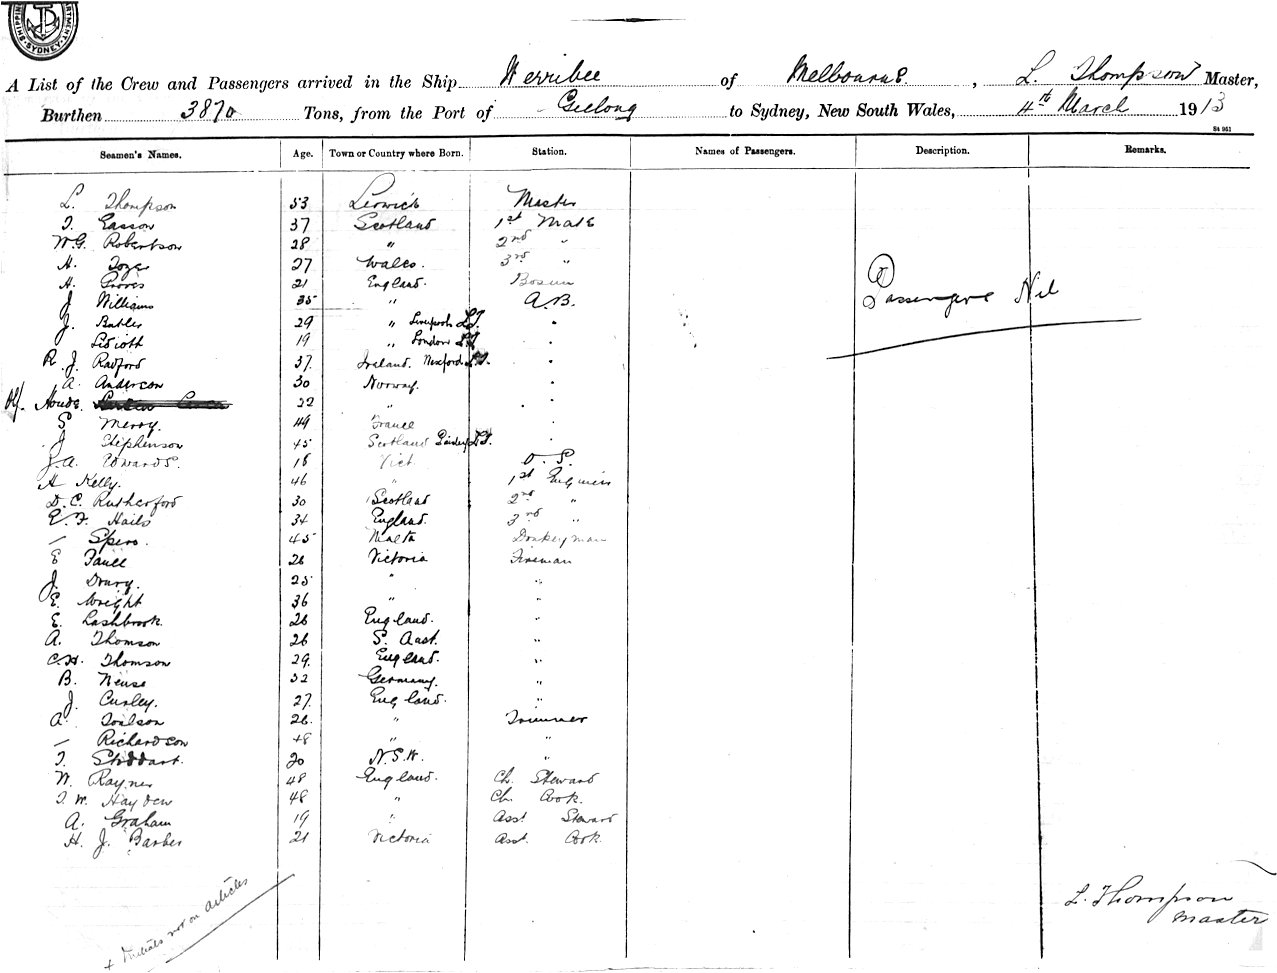 SHIPPING DEPARTMENT. SYDNEY
A List of the Crew and Passengers arrived in the Ship Werribee of Melbourne, L. Thompson Master,
Burthen 3870 Tons, from the Port of Geelong to Sydney, New South Wales, 4th March 1913
St 951
Seamen's Names. Age. Town or Country where Born. Station. Names of Passengers. Description. Remarks.
L. Thompson 53 Lerwick Master
T. Easson 37 Scotland 1st Mate
W.G. Robertson 28 " 2nd "
H. Tozer 27 Wales. 3rd "
H. Groves 21 England. Bosun
J Williams 35 " A.B.
Passengers Nil
J. Butler 29 " Liverpool L.T.
19 " London L.T.
R. J. Radford 37. Ireland. Wexford L.T.
A. Anderson 30 Norway.
Olf. 22 "
S Merry. 49 France
J Stephenson 45 Scotland Paisley L.T.
J.A. Edwards. 18 Vict. O.S.
H Kelly. 46 " 1st Engineer
D.C. Rutherford 30 Scotland 2nd "
E.F. Hails 34 England. 3rd "
— Spero. 45 Malta Donkeyman
E 26 Victoria Fireman
J. Drury. 25 " "
E. Wright 36 " "
E. Lashbrook. 26 England. "
A. Thomson 26 S. Aust. "
C.H. Thomson 29. England. "
B. Neuse 32 Germany. "
J. Curley. 27. England. "
A. Toulson 26. " Trimmer
— Richardson 48 " "
T. Stoddart. 20 N.S.W. "
W. Rayner 48 England. Ch. Steward
T.W. Hayden 48 " Ch. Cook.
A. Graham 19 " Asst. Steward
H. J. Barber 21 Victoria Asst. Cook.
+ Initials not on articles
L. Thompson
Master